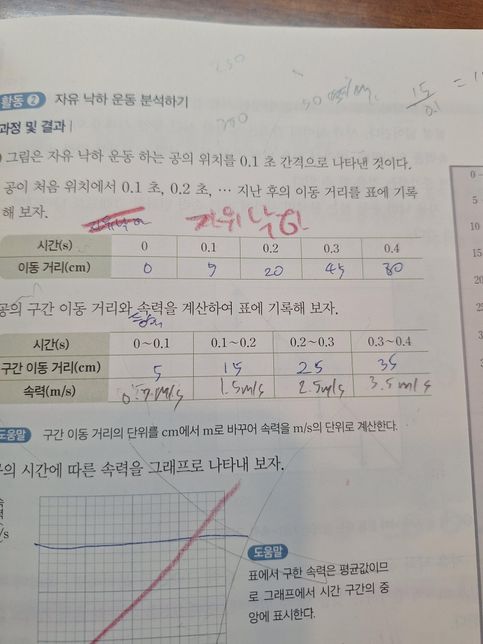 250
15/0.1 = 1
활동 2 자유 낙하 운동 분석하기
과정 및 결과
그림은 자유 낙하 운동 하는 공의 위치를 0.1 초 간격으로 나타낸 것이다.
공이 처음 위치에서 0.1 초, 0.2 초, … 지난 후의 이동 거리를 표에 기록
해 보자.
자유낙하 자유낙하
시간(s) 0 0.1 0.2 0.3 0.4
이동 거리(cm) 0 5 20 45 80
공의 구간 이동 거리와 속력을 계산하여 표에 기록해 보자.
시간(s) 0~0.1 0.1~0.2 0.2~0.3 0.3~0.4
구간 이동 거리(cm) 5 15 25 35
속력(m/s) 1.5m/s 2.5m/s 3.5m/s
도움말 구간 이동 거리의 단위를 cm에서 m로 바꾸어 속력을 m/s의 단위로 계산한다.
의 시간에 따른 속력을 그래프로 나타내 보자.
도움말
표에서 구한 속력은 평균값이므
로 그래프에서 시간 구간의 중
앙에 표시한다.
0
5
10
15